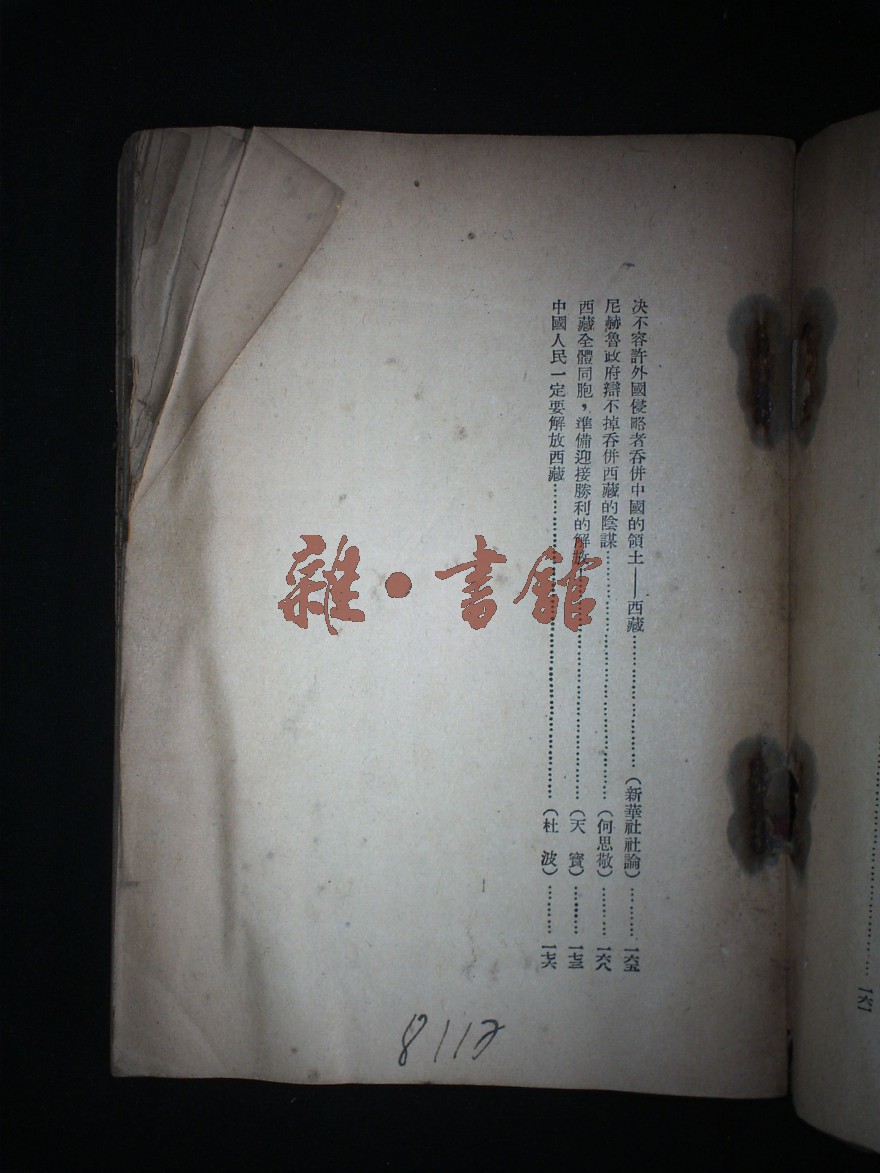 决不容許外國侵略者吞併中國的領土——西藏……………………(新華社社論)………一六五
尼赫魯政府辯不掉吞併西藏的陰謀……………………(何思敬)………一六八
西藏全體同胞，準備迎接勝利的解放……………………(天 寶)………一七三
中國人民一定要解放西藏……………………(杜 波)………一七六
雜·書館
8112
……………………一六一